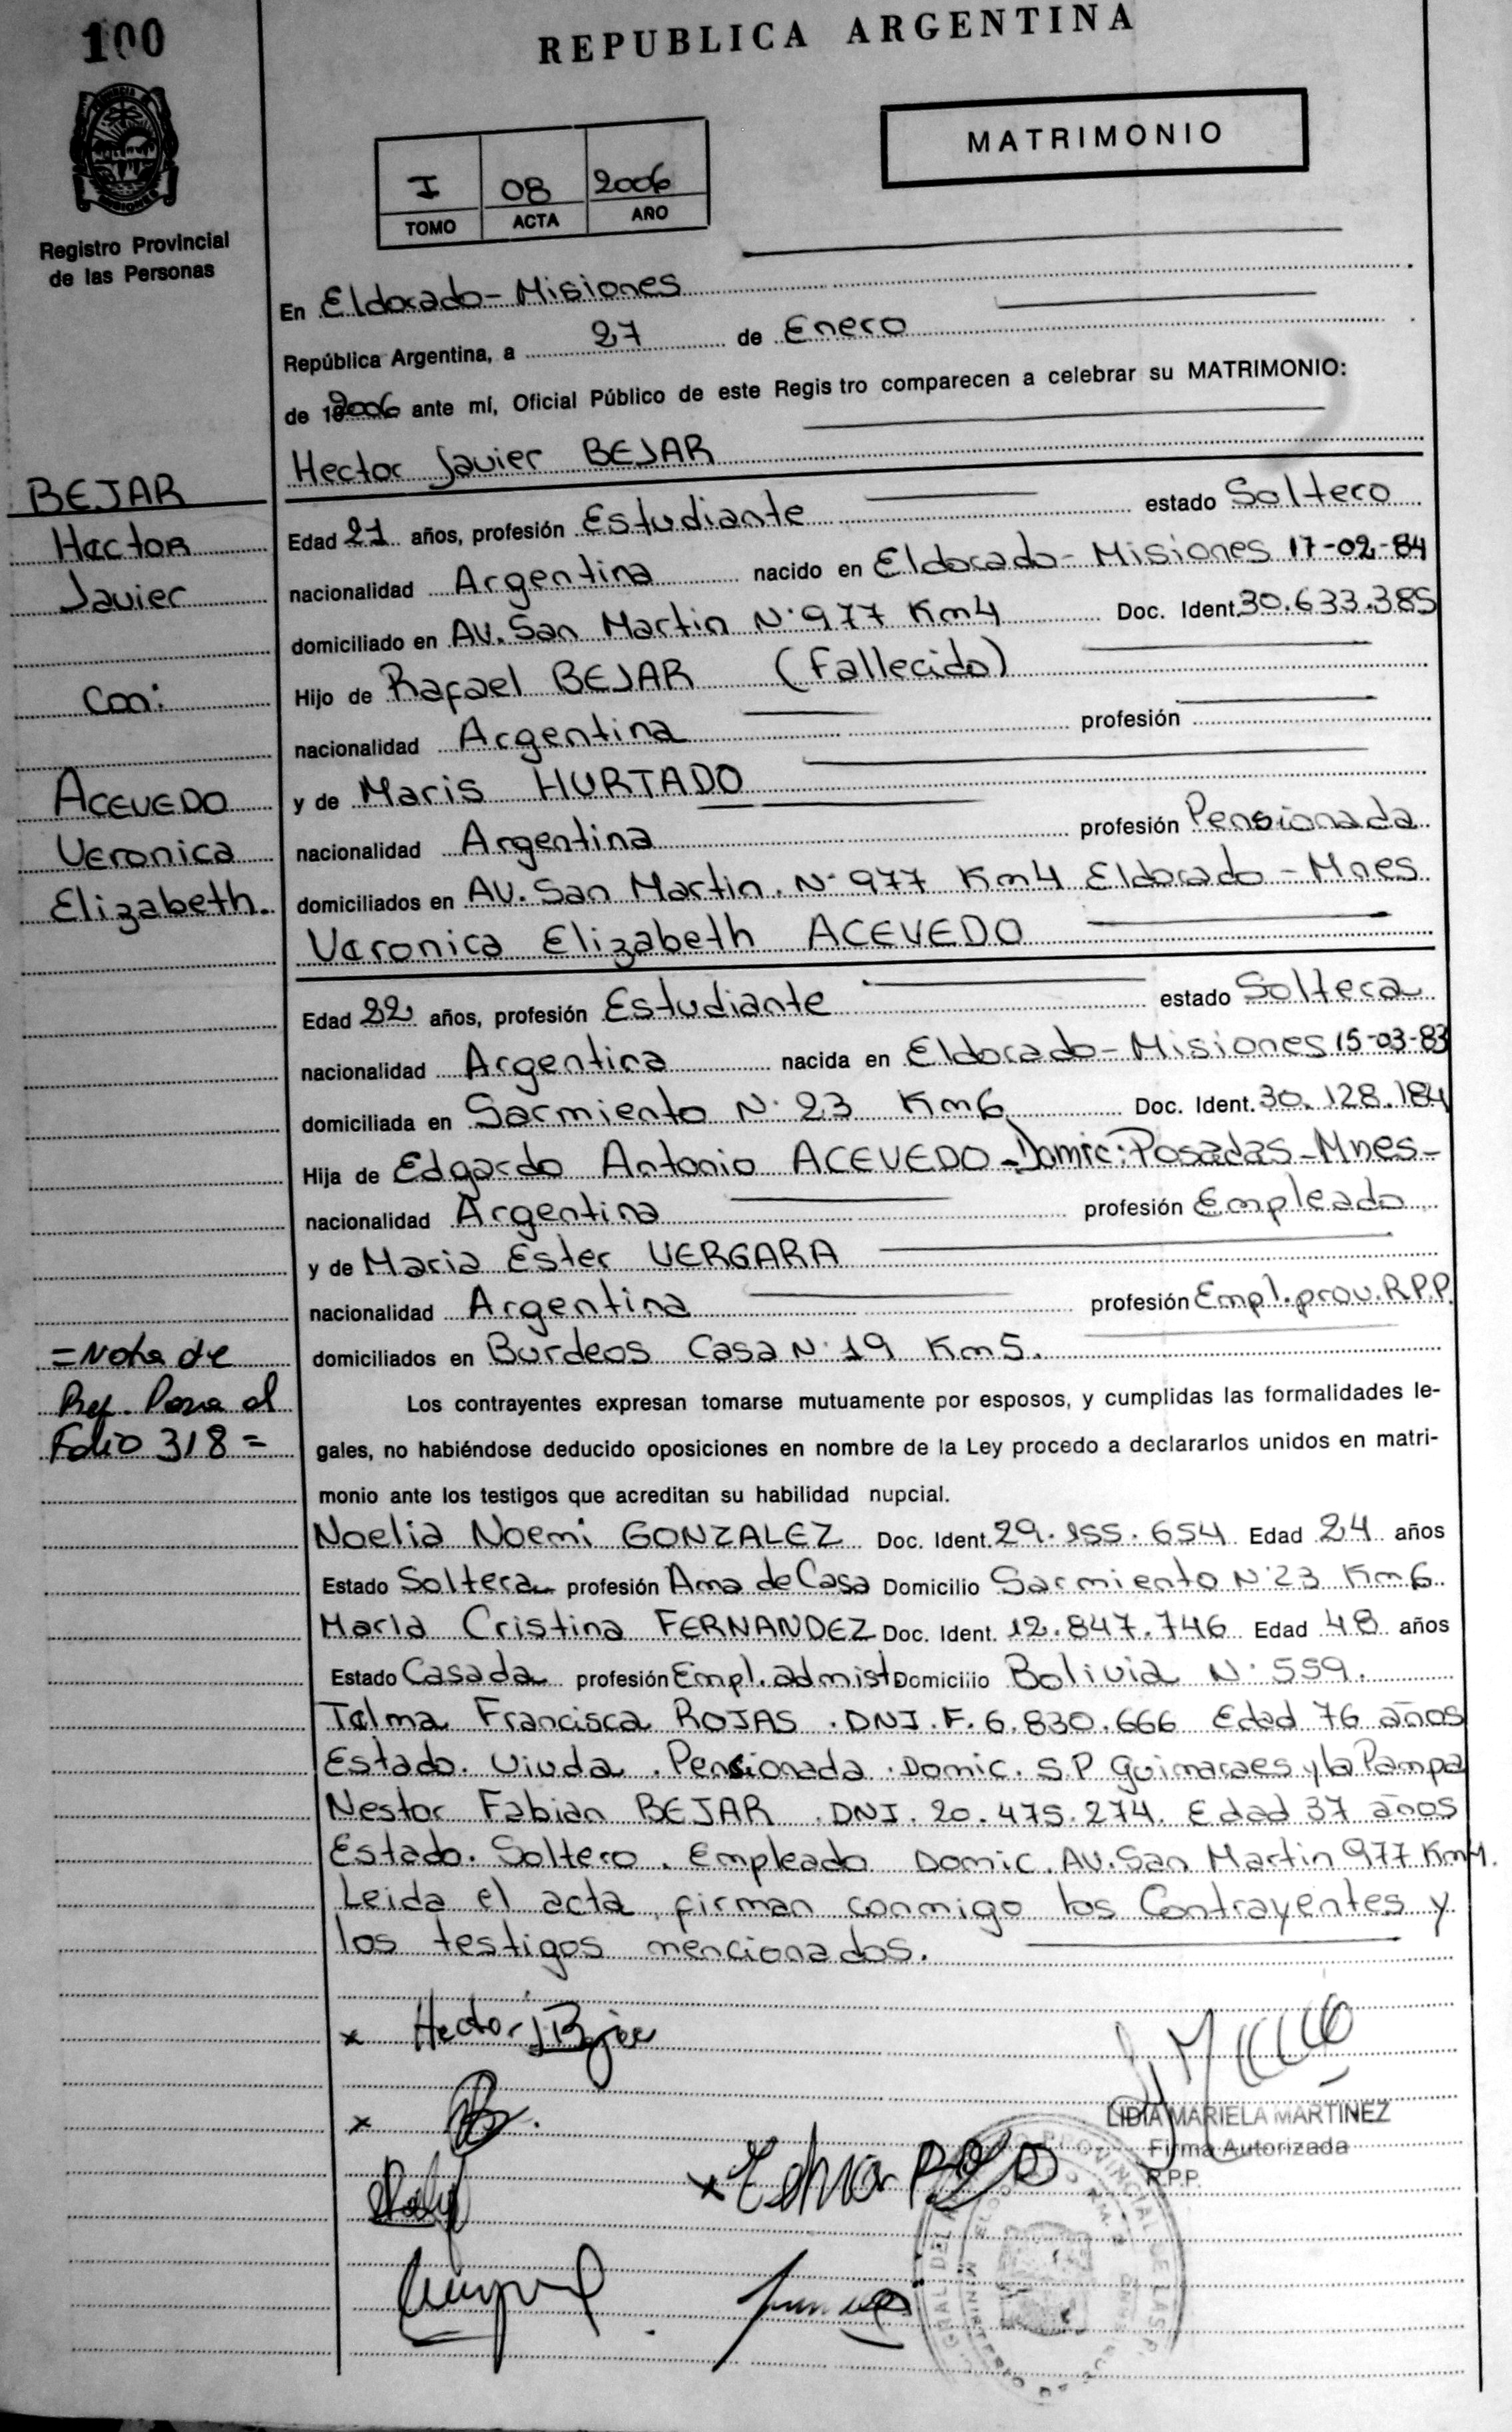 100
REPUBLICA ARGENTINA
MATRIMONIO
I 08 2006
TOMO ACTA AÑO
Registro Provincial
de las Personas
En Eldorado - Misiones
República Argentina, a 27 de Enero
de 2006 ante mí, Oficial Público de este Regis tro comparecen a celebrar su MATRIMONIO:
Hector Javier BEJAR
BEJAR
Hector
Javier
Con:
ACEVEDO
Veronica
Elizabeth.
Edad 21 años, profesión Estudiante estado Soltero
nacionalidad Argentina nacido en Eldorado - Misiones 17-02-84
domiciliado en AV. San Martin N° 977 Km4 Doc. Ident. 30.633.385
Hijo de Rafael BEJAR (Fallecido)
nacionalidad Argentina profesión
y de Maris HURTADO
nacionalidad Argentina profesión Pensionada
domiciliados en AV. San Martin. N° 977 Km4 Eldorado - Mnes
Veronica Elizabeth ACEVEDO
Edad 22 años, profesión Estudiante estado Soltera
nacionalidad Argentina nacida en Eldorado - Misiones 15-03-83
domiciliada en Sarmiento N° 23 Km6 Doc. Ident. 30.128.184
Hija de Edgardo Antonio ACEVEDO - Domic: Posadas - Mnes -
nacionalidad Argentina profesión Empleado
y de Maria Ester VERGARA
nacionalidad Argentina profesión Empl. prov. R.P.P.
domiciliados en Burdeos Casa N° 19 Km5.
= Nota de
Ref. Pasa al
Folio 318 =
Los contrayentes expresan tomarse mutuamente por esposos, y cumplidas las formalidades le-
gales, no habiéndose deducido oposiciones en nombre de la Ley procedo a declararlos unidos en matri-
monio ante los testigos que acreditan su habilidad nupcial.
Noelia Noemi GONZALEZ Doc. Ident. 29.155.654 Edad 24 años
Estado Soltera profesión Ama de Casa Domicilio Sarmiento N° 23 Km6
Maria Cristina FERNANDEZ Doc. Ident. 12.847.746 Edad 48 años
Estado Casada profesión Empl. admist Domicilio Bolivia N° 559.
Telma Francisca ROJAS . DNI. F. 6.830.666 Edad 76 años
Estado. Viuda . Pensionada . Domic. S.P Guimaraes y la Pampa
Nestor Fabian BEJAR . DNI. 20.475.274. Edad 37 años
Estado. Soltero . Empleado Domic. AV. San Martin 977 Km4.
Leida el acta, firman conmigo los Contrayentes y
los testigos mencionados.
x Hector J Bejar
x
LIDIA MARIELA MARTINEZ
Firma Autorizada
R.P.P.